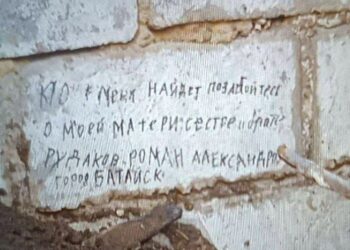 КТО МЕНЯ НАЙДЕТ ПОЗАБОТЬТЕСЬ
О МОЕЙ МАТЕРИ. СЕСТРЕ И
РУДАКОВ. РОМАН АЛЕКСАНДРО
ГОРОД БАТАЙСК